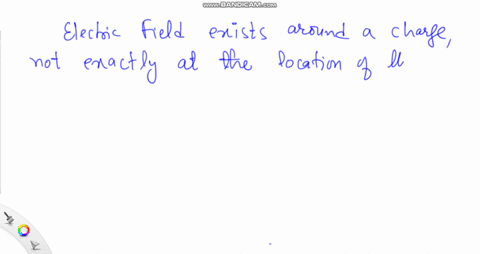 WWW.BANDICAM.COM
Electric field exists around a charge,
not exactly at the location of